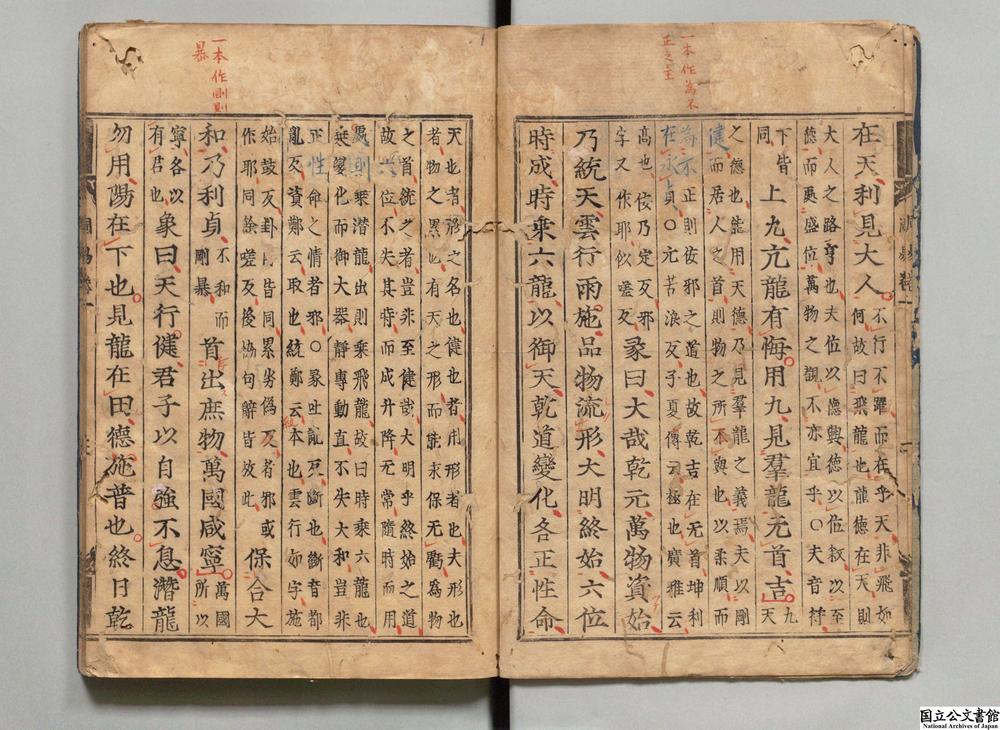 一本作為不
正之主
在天利見大人
不行不躍而在乎天非飛如
何故曰飛龍也龍德在天則
大人之路亨也夫位以德興德以位叙以至
德而處盛位萬物之覩不亦宜乎○夫音符
下皆
同
上九亢龍有悔用九見羣龍无首吉
九
天
之德也能用天德乃見羣龍之義焉夫以剛
健而居人之首則物之所不與也以柔順而
為不正則佞邪之道也故乾吉在无首坤利
在永貞○亢苦浪反子夏傳云極也廣雅云
高也佞乃定反邪
字又作耶似嗟反
彖曰大哉乾元萬物資始
乃統天雲行雨施品物流形大明終始六位
時成時乗六龍以御天乾道變化各正性命
一本作剛則
暴
天也者形之名也健也者用形者也夫形也
者物之累也有天之形而能永保无虧為物
之首統之者豈非至健哉大明乎終始之道
故六位不失其時而成升降无常隨時而用
處則乗潜龍出則乗飛龍故曰時乗六龍也
乗變化而御大器靜專動直不失大和豈非
正性命之情者邪○彖吐亂反斷也斷音都
亂反資鄭云取也統鄭云本也雲行如字施
始豉反卦皆同累劣偽反者邪或
作耶同餘嗟反後協句辭皆放此
保合大
和乃利貞
不和而
剛暴
首出庶物萬國咸寧
萬國
所以
寧各以
有君也
象曰天行健君子以自強不息潜龍
勿用陽在下也見龍在田德施普也終日乾
周易卷一
国立公文書館
National Archives of Japan